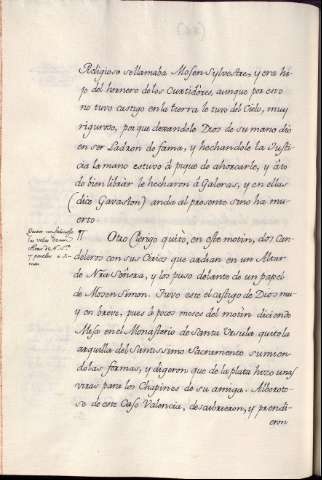 Religioso se llamaba Mosen Sylvestre, y era hi-
jo del hornero de los Curtidores, aunque por esto
no tuvo castigo en la tierra le tuvo del Cielo, muy
riguroso, porque dexandole Dios de su mano dio
en ser Ladron de fama, y hechandole la Justi-
cia la mano estuvo á pique de ahorcarle, y á to
do bien librar le hecharon á Galeras, y en ellas
(dice Gavaston) anda al presente sino ha mu-
erto.
¶ Otro Clerigo quitò, en este motin, dos can-
deleros con sus Cirios que ardian en un Altar
de Nra Señora, y los puso delante de un papel
de Mosen Simon. Tuvo este el castigo de Dios mu-
y en breve, pues á pocos meses del motin diciendo
Misa en el Monasterio de Santa Ursula quito la
arquilla del Santissimo Sacramento sumien-
do las formas, y digeron que de la plata hizo unas
viras para los Chapines de su amiga. Alboroto-
se de este Caso Valencia, descubrieron, y prendi-
eron